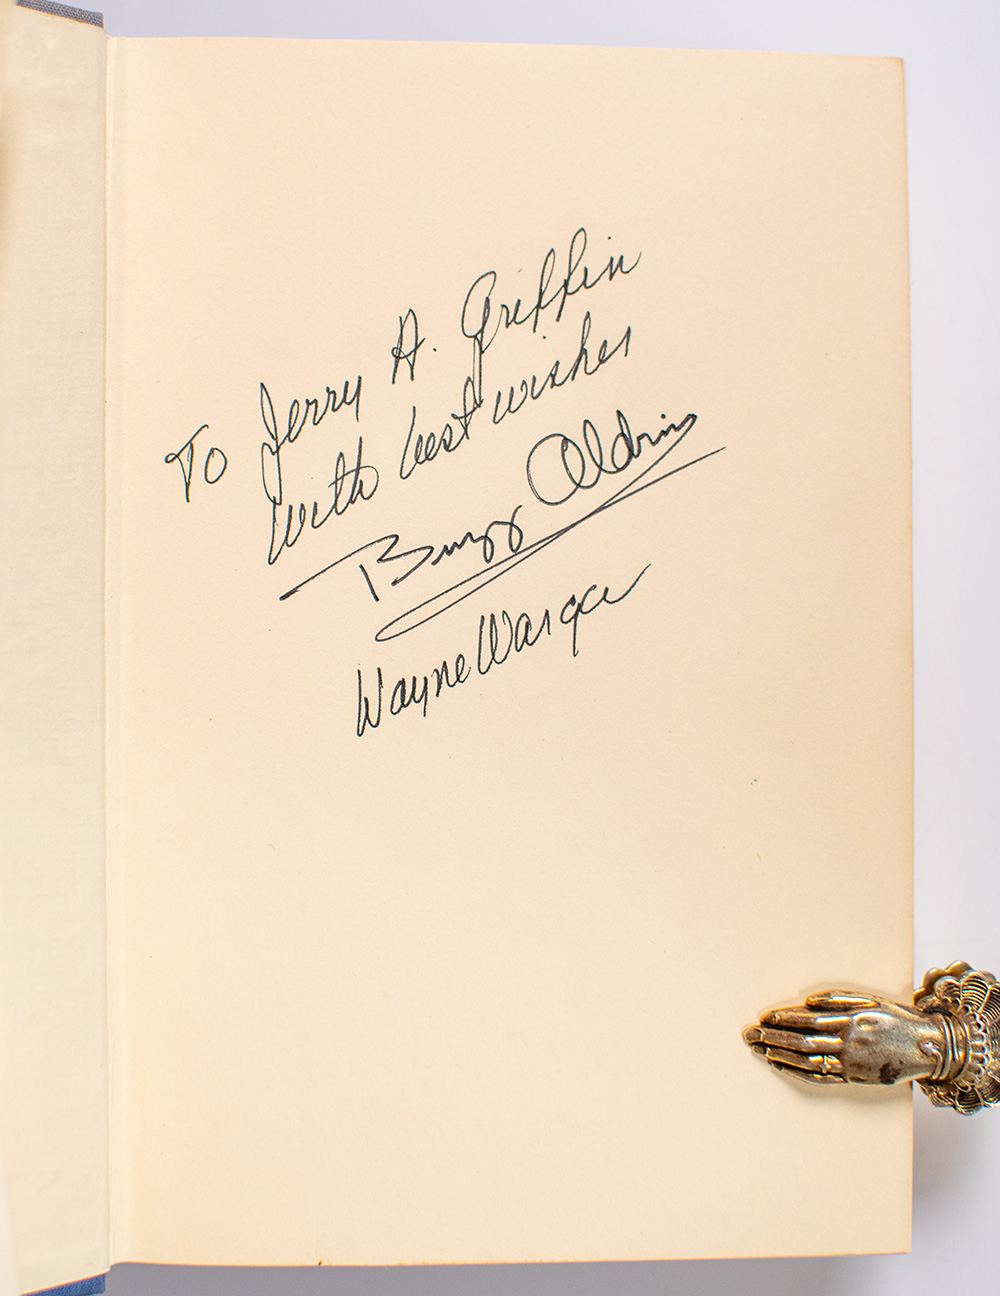 To Jerry A. Griffin
with best wishes
Buzz Aldrin
Wayne Warga